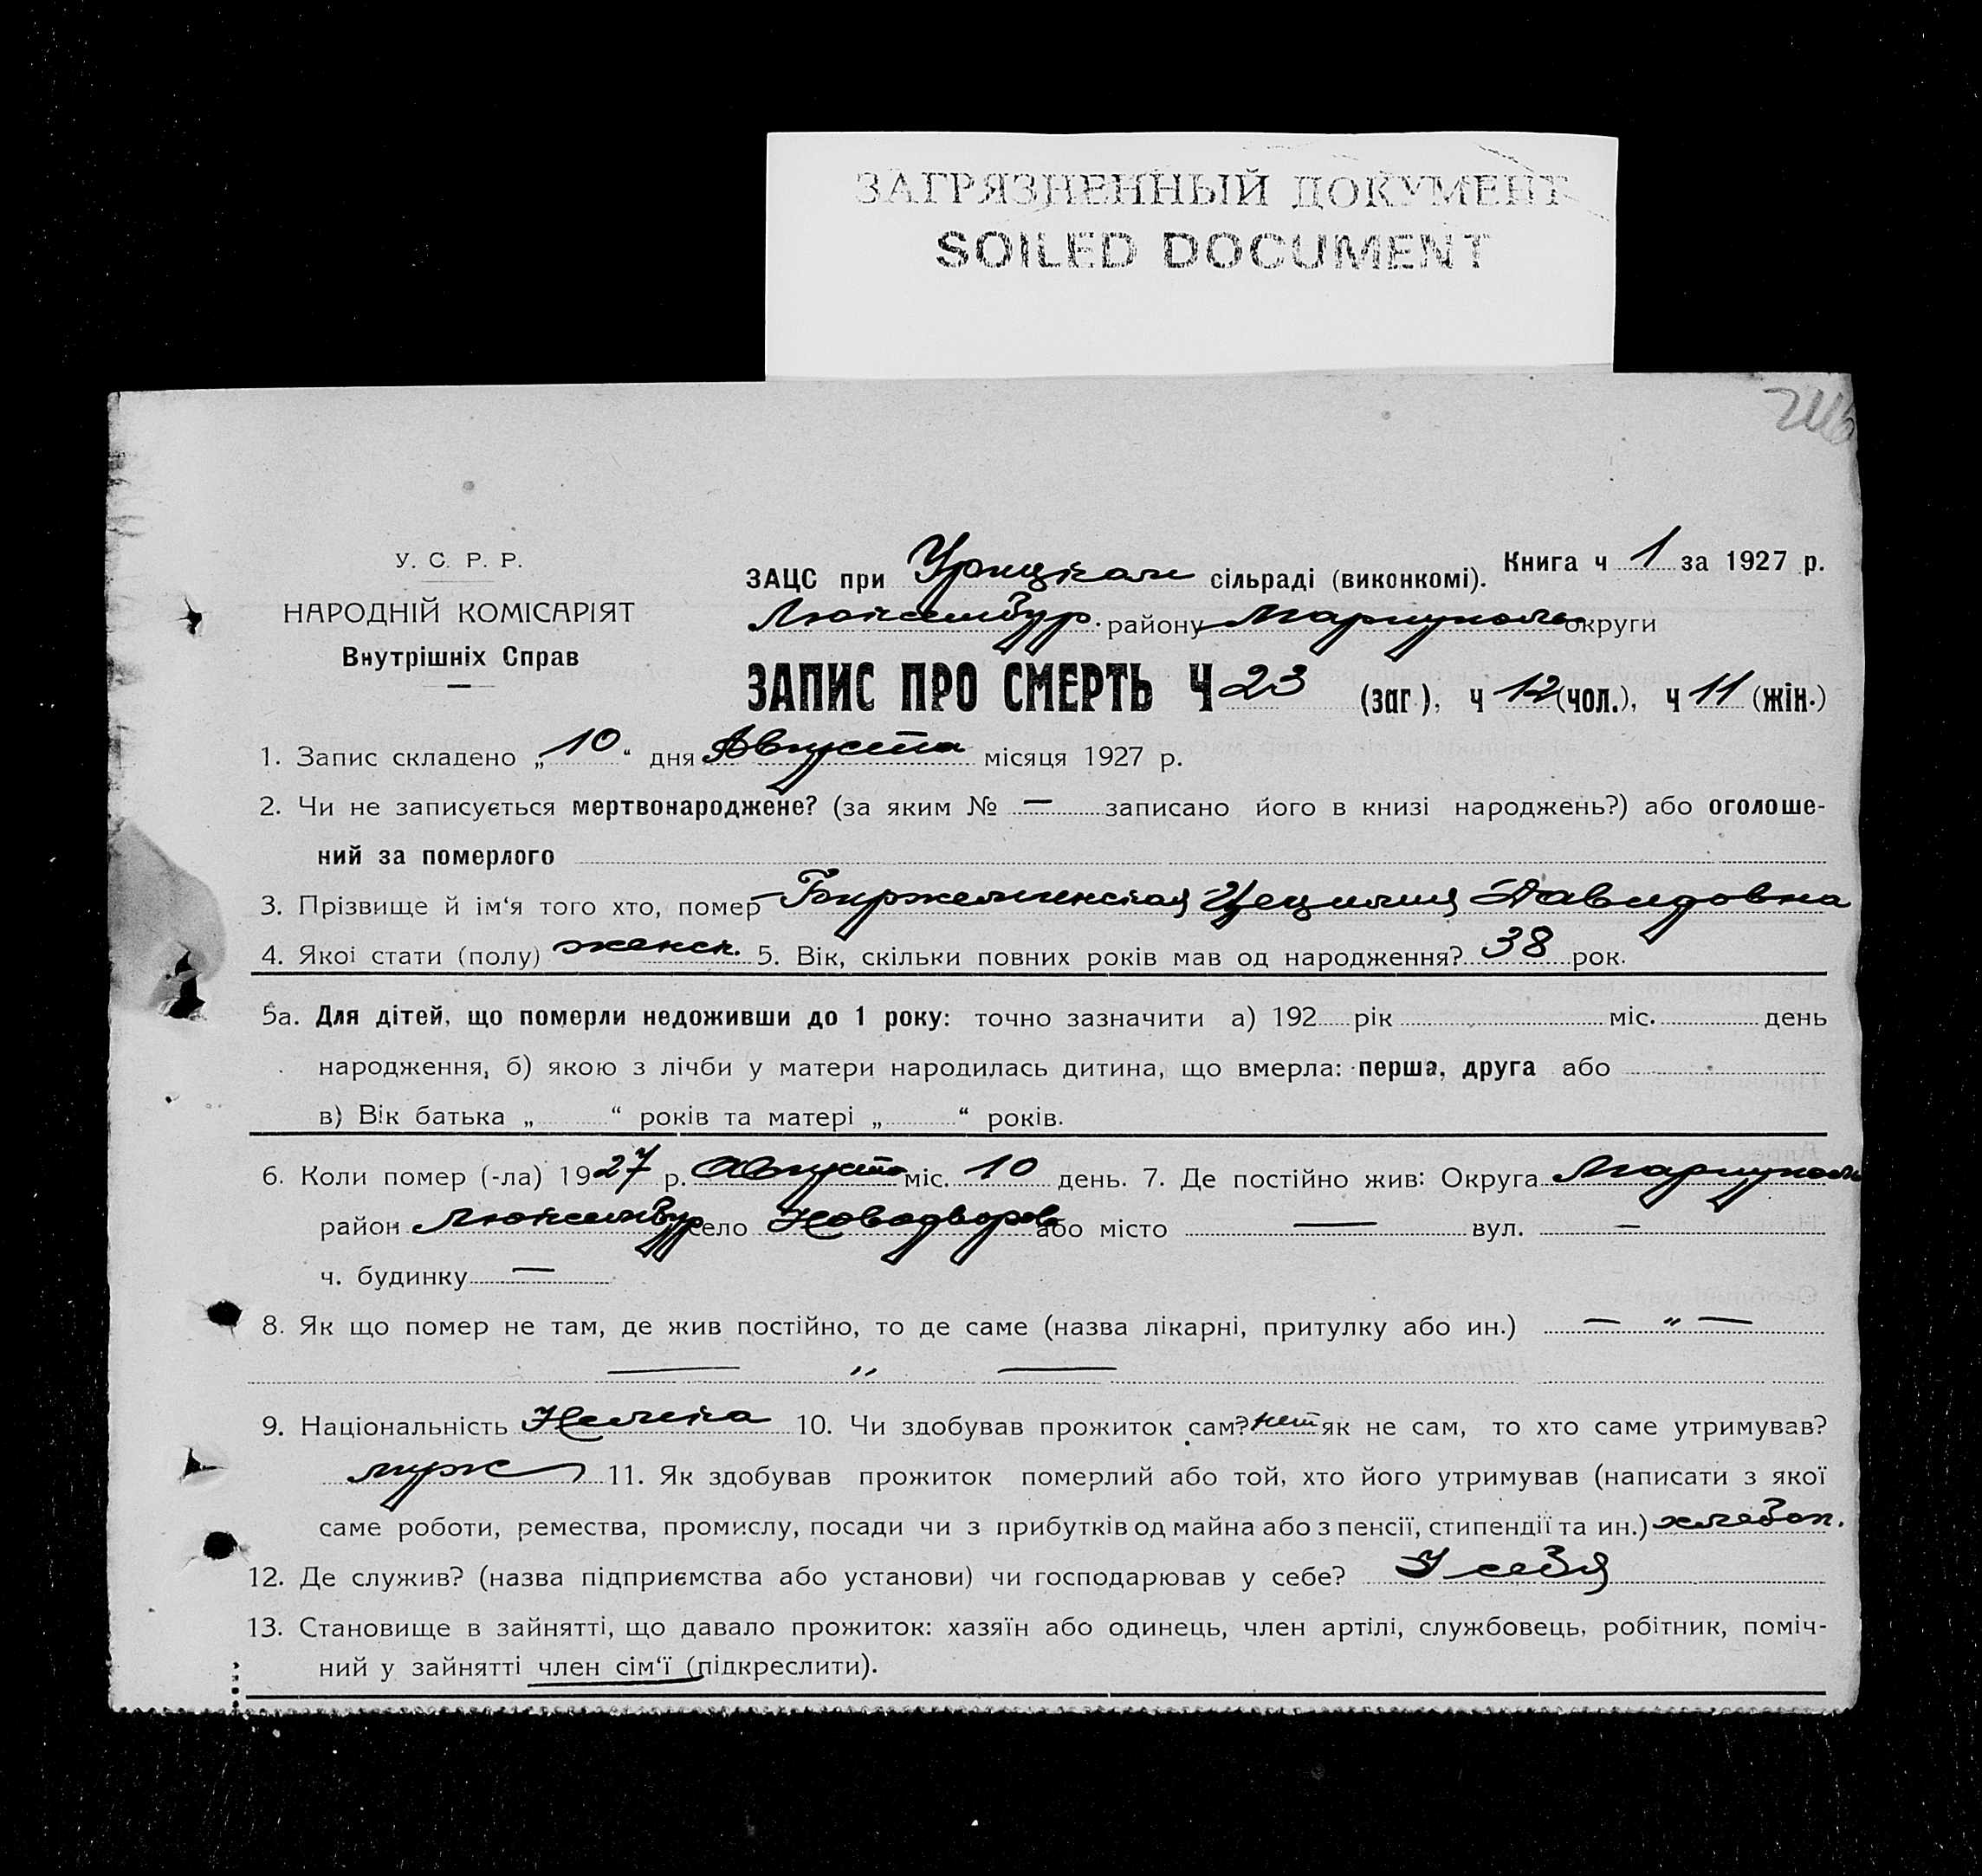 ЗАГРЯЗНЕННЫЙ ДОКУМЕНТ
SOILED DOCUMENT
У. С. Р. Р.
НАРОДНІЙ КОМІСАРІЯТ
Внутрішніх Справ
ЗАЦС при Урицком сільраді (виконкомі). Книга ч 1 за 1927 р.
Люксембур. району Мариуполь округи
ЗАПИС ПРО СМЕРТЬ Ч 23 (заг), ч 12 (чол.), ч 11 (жін.)
1. Запис складено „ 10 “ дня Августа місяця 1927 р.
2. Чи не записується мертвонароджене? (за яким № — записано його в книзі народжень?) або оголоше-
ний за померлого
3. Прізвище й ім‘я того хто, помер Цецилия Давидовна
4. Якої стати (полу) женск. 5. Вік, скільки повних років мав од народження? 38 рок.
5а. Для дітей, що померли недоживши до 1 року: точно зазначити а) 192 рік міс. день
народження, б) якою з лічби у матери народилась дитина, що вмерла: перша, друга або
в) Вік батька „ “ років та матері „ “ років.
6. Коли помер (-ла) 1927 р. Августа міс. 10 день. 7. Де постійно жив: Округа Мариуполь
район Люксембур село Новодворов або місто — вул. —
ч. будинку —
8. Як що помер не там, де жив постійно, то де саме (назва лікарні, притулку або ин.) — „ —
— „ —
9. Національність Немка 10. Чи здобував прожиток сам? нет як не сам, то хто саме утримував?
муж 11. Як здобував прожиток померлий або той, хто його утримував (написати з якої
саме роботи, ремества, промислу, посади чи з прибутків од майна або з пенсії, стипендії та ин.) хлебоп.
12. Де служив? (назва підприємства або установи) чи господарював у себе? У себя
13. Становище в зайнятті, що давало прожиток: хазяїн або одинець, член артілі, службовець, робітник, поміч-
ний у зайнятті член сім‘ї (підкреслити).